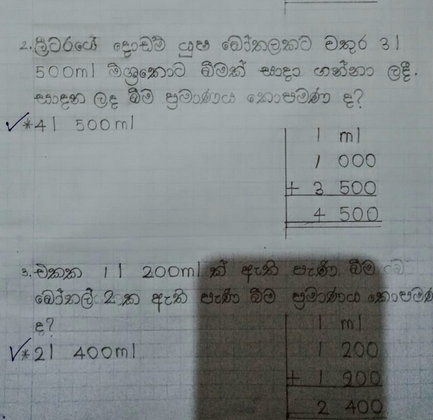 2. ලීටරයේ දොඩම් යුෂ බෝතලකට වතුර 3l
500ml මිශ්‍රකොට බීමක් සාදා ගන්නා ලදී.
සාදන ලද බීම ප්‍රමාණය කොපමණ ද?
✓*4l 500ml
l ml
1 000
+ 3 500
4 500
3. එකක 1l 200ml ක් ඇති පැණි බීම
බෝතල් 2 ක ඇති පැණි බීම ප්‍රමාණය කොපමණ
ද?
✓*2l 400ml
l ml
1 200
+ 1 200
2 400